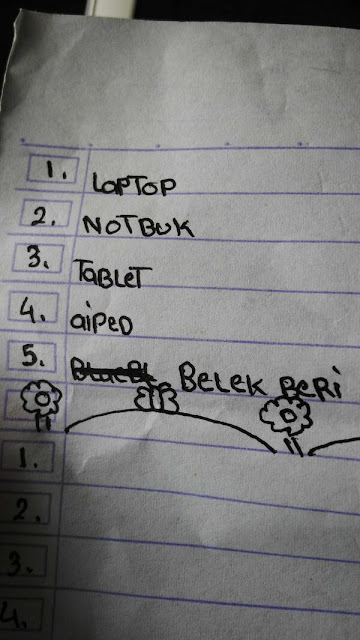 1. LAPTOP
2. NOTBUK
3. TABLET
4. aiPED
5. BELEK BERI
1.
2.
3.
4.